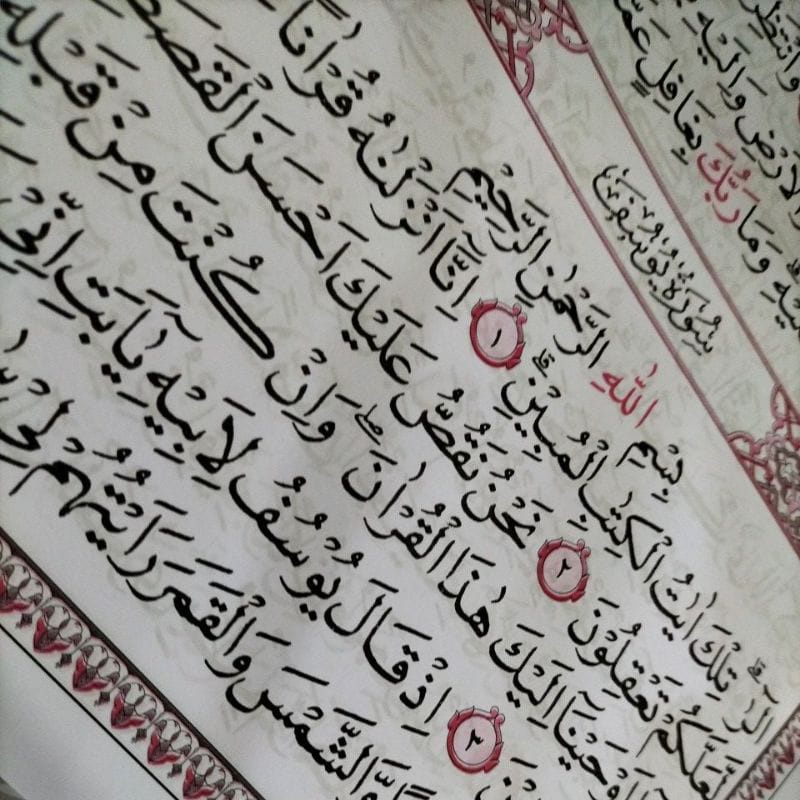 الْاَرْضِ وَاِلَيْهِ
وَمَا رَبُّكَ بِغَافِلٍ عَمَّا
سُورَةُ يُوسُفَ
بِسْمِ اللّٰهِ الرَّحْمٰنِ الرَّحِيْمِ
الٓرٰ تِلْكَ اٰيٰتُ الْكِتٰبِ الْمُبِيْنِ ١ اِنَّآ اَنْزَلْنٰهُ قُرْاٰنًا
لَعَلَّكُمْ تَعْقِلُوْنَ ٢ نَحْنُ نَقُصُّ عَلَيْكَ اَحْسَنَ الْقَصَصِ
اَوْحَيْنَآ اِلَيْكَ هٰذَا الْقُرْاٰنَ وَاِنْ كُنْتَ مِنْ قَبْلِهٖ
٣ اِذْ قَالَ يُوْسُفُ لِاَبِيْهِ يٰٓاَبَتِ اِنِّيْ
وَّالشَّمْسَ وَالْقَمَرَ رَاَيْتُهُمْ لِيْ